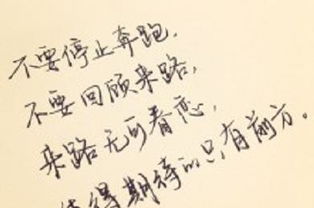 不要停止奔跑.
不要回顾来路,
来路无可眷恋,
值得期待的只有前方。